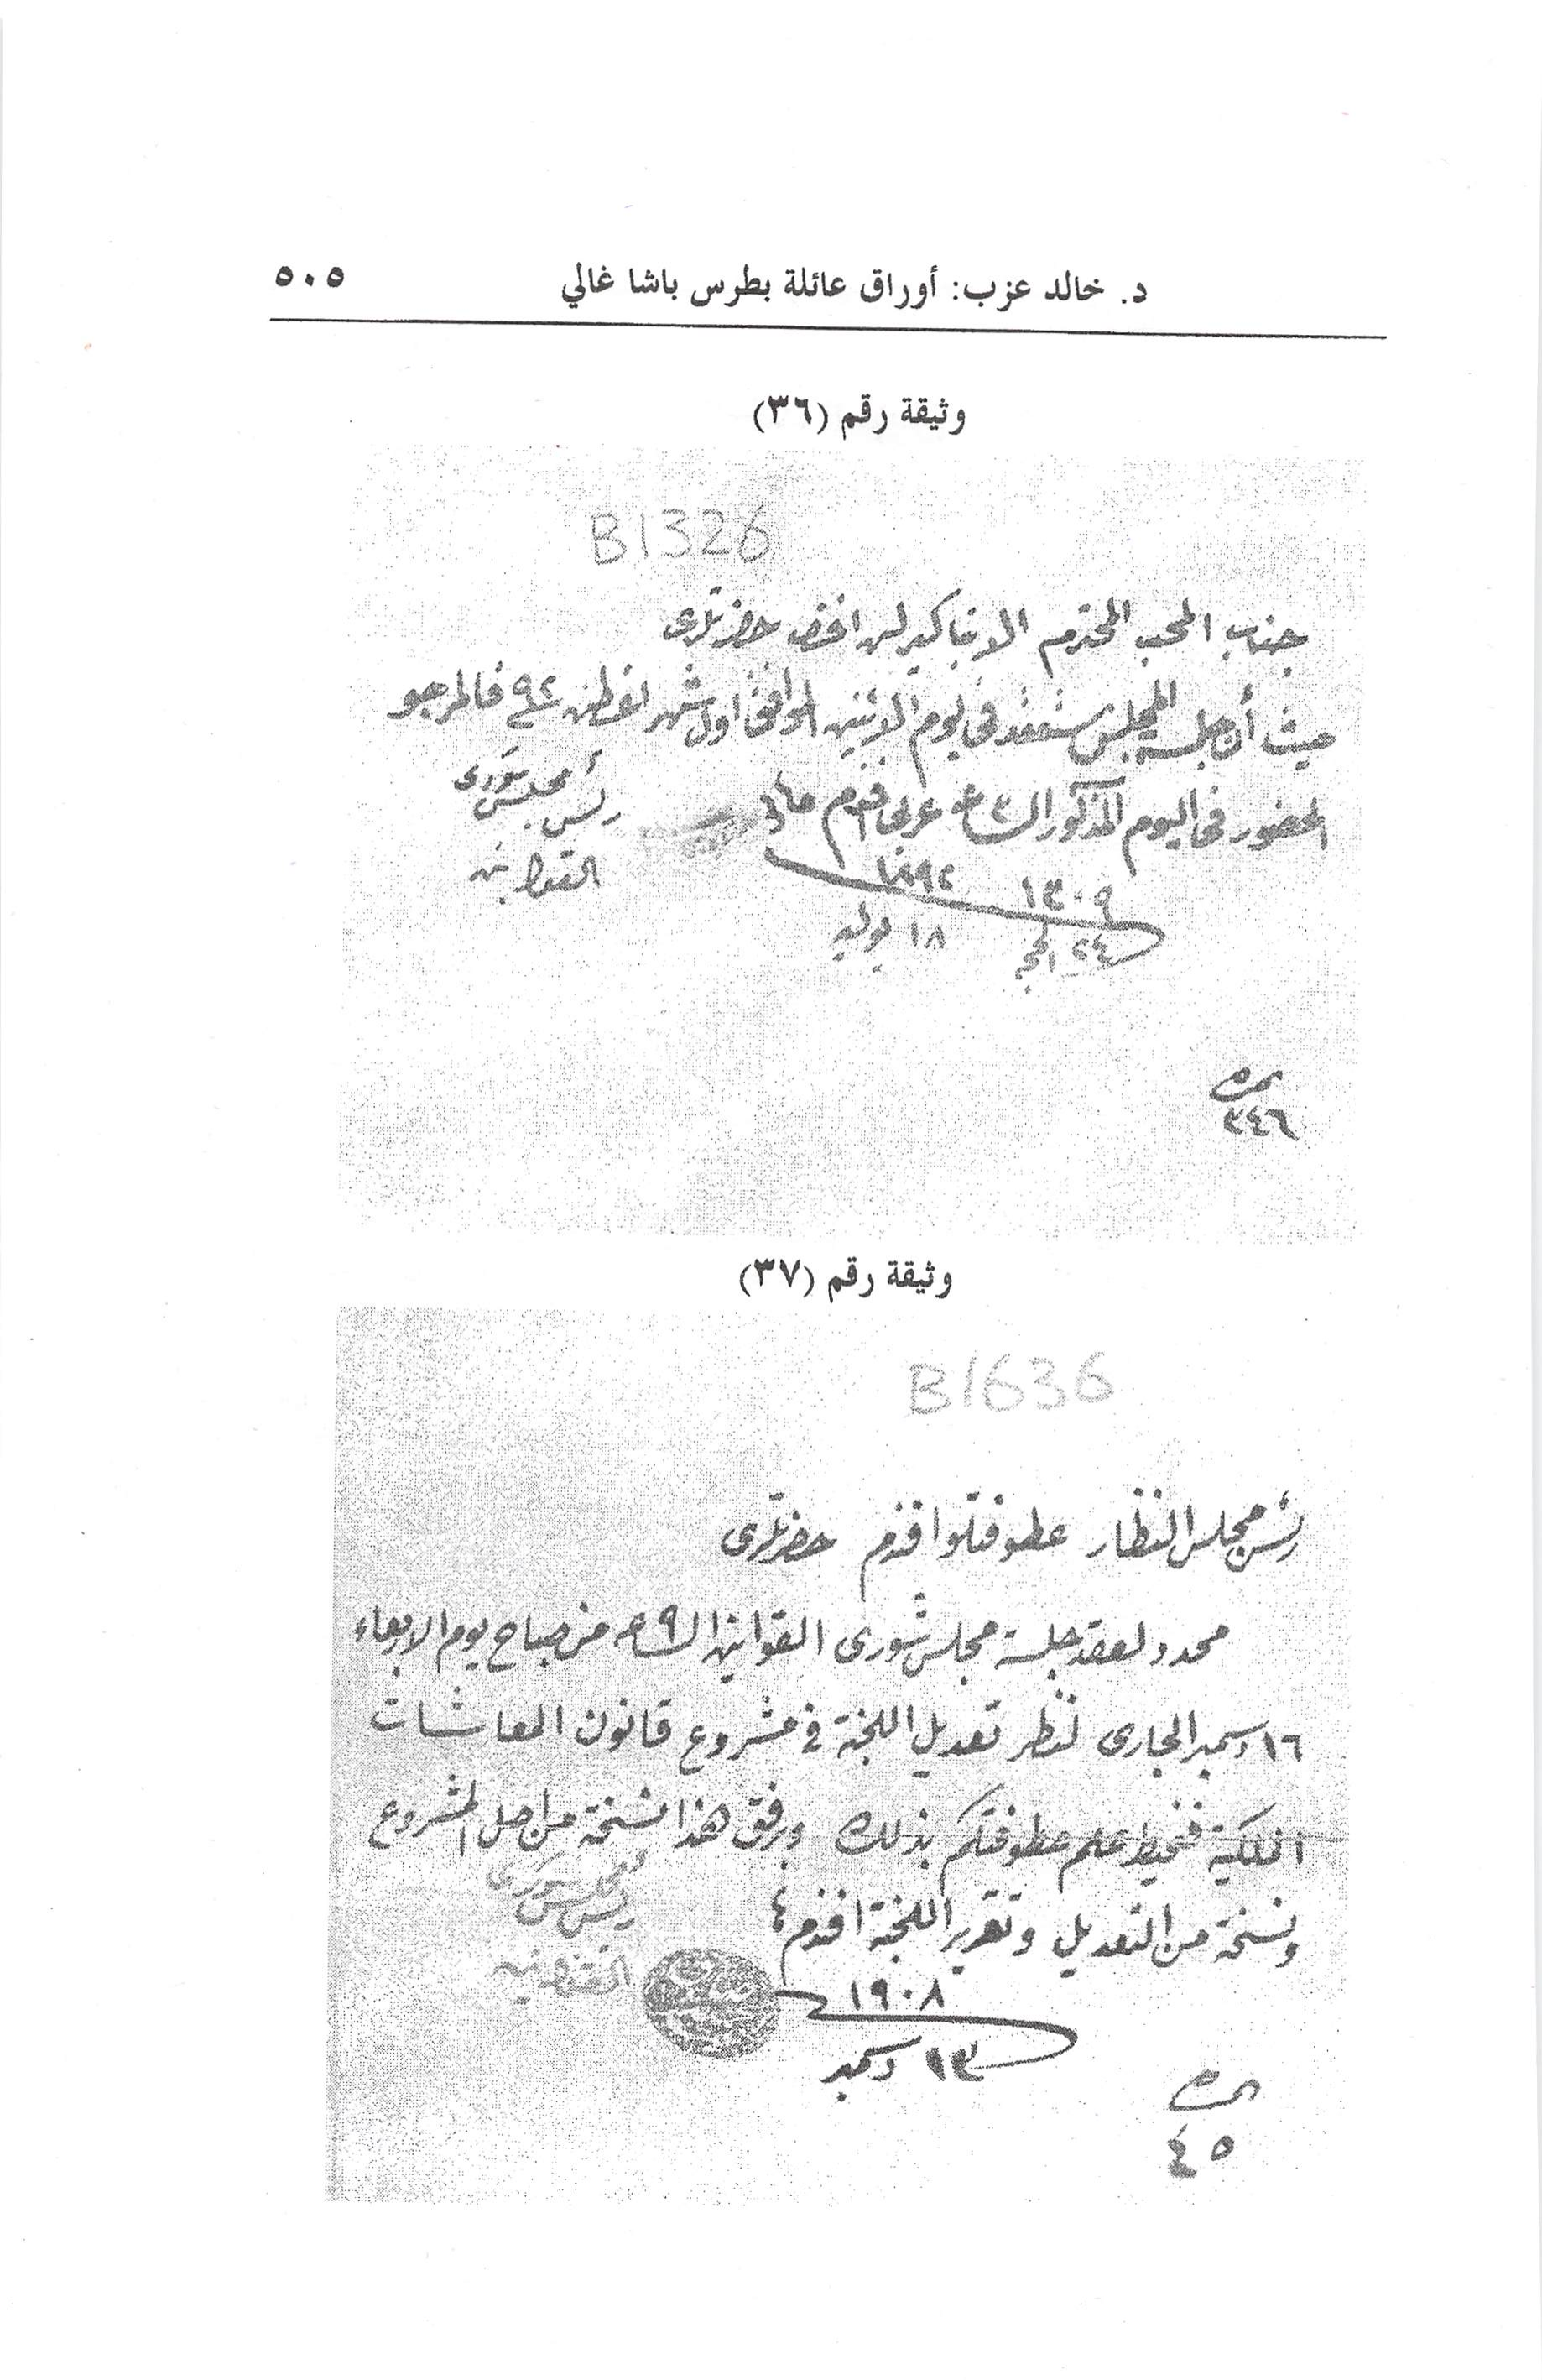 د. خالد عزب: أوراق عائلة بطرس باشا غالي
٥٠٥
وثيقة رقم (٣٦)
B1326
جناب المحب المحترم الانبا كيرلس افخم حضرتلرى
حيث أن جلسة المجلس ستنعقد فى يوم الاثنين الموافق اول شهر اغسطس ٩٢ فالمرجو
الحضور فى اليوم المذكور الساعة ٣ عربى افندم
رئيس مجلس شورى
القوانين
١٣٠٩ ١٨٩٢
٢٤ الحجة ١٨ يوليه
نمره
٣٤٦
وثيقة رقم (٣٧)
B1636
رئيس مجلس النظار عطوفتلو افندم حضرتلرى
محدد لعقد جلسة مجلس شورى القوانين الساعة ٩ من صباح يوم الاربعاء
١٦ دسمبر الجارى لنظر تعديل اللجنة فى مشروع قانون المعاشات
الملكية فنحيط علم عطوفتكم بذلك وبرفق هذا نسخة من اصل المشروع
ونسخة من التعديل وتقرير اللجنة افندم
رئيس مجلس شورى
القوانين
١٩٠٨
١٣ دسمبر
نمره
٤٥